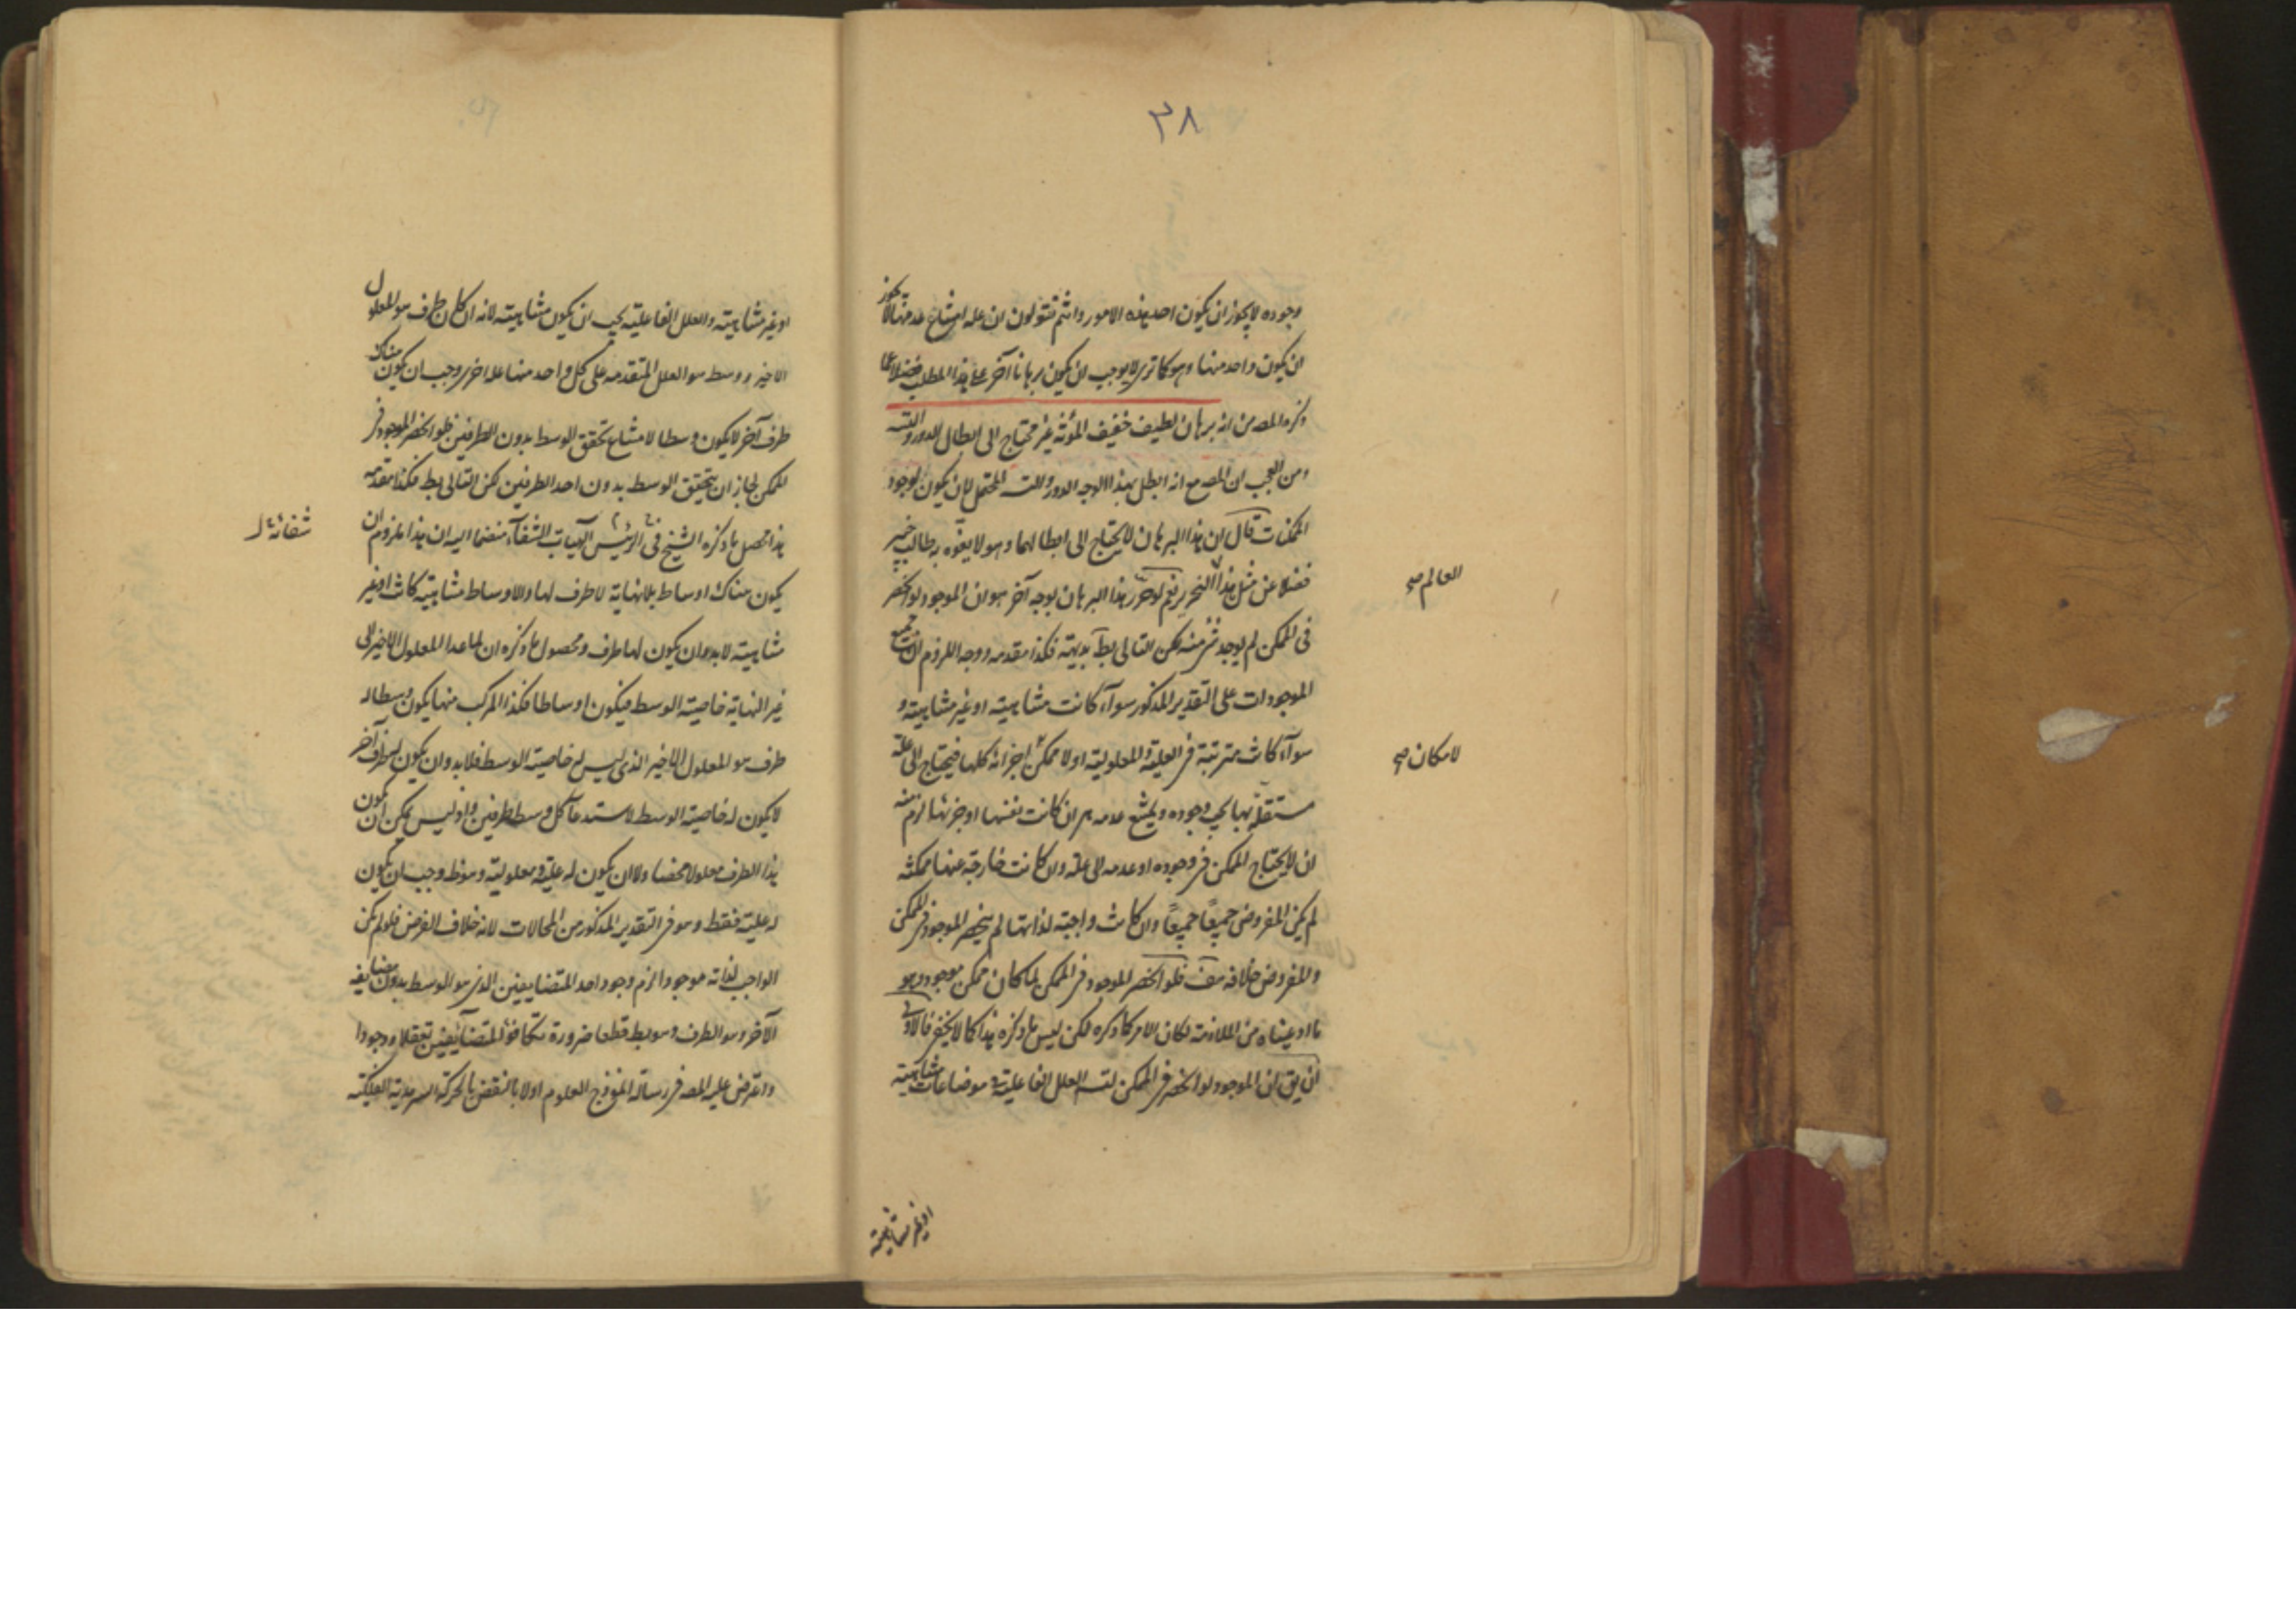 ٣٨
وجوده لا يجوز ان يكون احد هذه الامور وانتم تقولون ان علة امتناع عدمها لا يجوز
ان يكون واحد منها وهو كما ترى لا يوجب ان يكون برهانا آخر على هذا المطلب فضلا عما
ذكره المص من انه برهان لطيف خفيف المؤنة غير محتاج الى ابطال الدور والتسه
ومن العجب ان المص مع انه ابطل بهذا الوجه الدور والتسه المحتمل لان يكون لوجود
الممكنات قال ان هذا البرهان لا يحتاج الى ابطالهما وهو لا يفوه به طالب خبير
فضلا عن مثل هذا النحرير نعم لو حرر هذا البرهان بوجه آخر هو ان الموجود لو انحصر
العالم صح
فى الممكن لم يوجد شئ منه لكن التالى بط بديهة فكذا مقدمه ووجه اللزوم ان جميع
الموجودات على التقدير المذكور سوآء كانت متناهية او غير متناهية و
سوآء كانت مترتبة فى العلية والمعلولية او لا ممكن اجزائه كلها فيحتاج الى علة
لامكان صح
مستقلة بها يجب وجوده ويمتنع عدمه هى ان كانت نفسها او جزئها لزم منه
ان لا يحتاج الممكن فى وجوده او عدمه الى علة وان كانت خارجة عنها ممكنة
لم يكن المفروض جميعًا جميعًا وان كانت واجبة لذاتها لم ينحصر الموجود فى الممكن
والمفروض خلافه هف فلو انحصر الموجود فى الممكن لما كان ممكن موجود وهو
ما ادعيناه من الملازمة لكان الامر كما ذكره لكن ليس ما ذكره هذا كما لا يخفى فالاولى
ان يق ان الموجود لو انحصر فى الممكن لتسه العلل الفاعلية وهو ضاعات متناهية
او غير متناهية
او غير متناهية والعلل الفاعلية يجب ان يكون متناهية لانه ان كان طرف هو المعلول
الاخير ووسط هو العلل المتقدمه على كل واحد منها علة اخرى وجب ان يكون هناك
طرف آخر لا يكون وسطا لامتناع تحقق الوسط بدون الطرفين فلو انحصر الموجود فى
الممكن لجاز ان يتحقق الوسط بدون احد الطرفين لكن التالى بط فكذا مقدمه
هذا محصل ما ذكره الشيخ الرئيس فى الهيات الشفآء منضما اليه ان هذا ملزوم ان
يكون هناك اوساط بلا نهاية لا طرف لها والاوساط متناهية كانت او غير
متناهية لا بد وان يكون لها طرف ومحصول ما ذكره ان لما عدا المعلول الاخير الى
غير النهاية خاصية الوسط فيكون اوساطا فكذا المركب منها يكون وسطا له
طرف هو المعلول الاخير الذى ليس له خاصية الوسط فلا بد وان يكون له طرف آخر
لا يكون له خاصية الوسط لاستدعآء كل وسط طرفين واذ ليس يمكن ان يكون
هذا الطرف معلولا محضا ولا ان يكون له علية ومعلولية وهو ظ وجب ان يكون
له علية فقط وهو فى التقدير المذكور من المحالات لانه خلاف الفرض فلو لم يكن
الواجب لذاته موجودا لزم وجود احد المتضايفين الذى هو الوسط بدون مضايفه
الآخر وهو الطرف وهو بط قطعا ضرورة تكافؤ المتضآيفين تعقلا ووجودا
واعترض عليه المص فى رسالة انموذج العلوم اولا بالنقض بالحركة السرمدية الفلكية